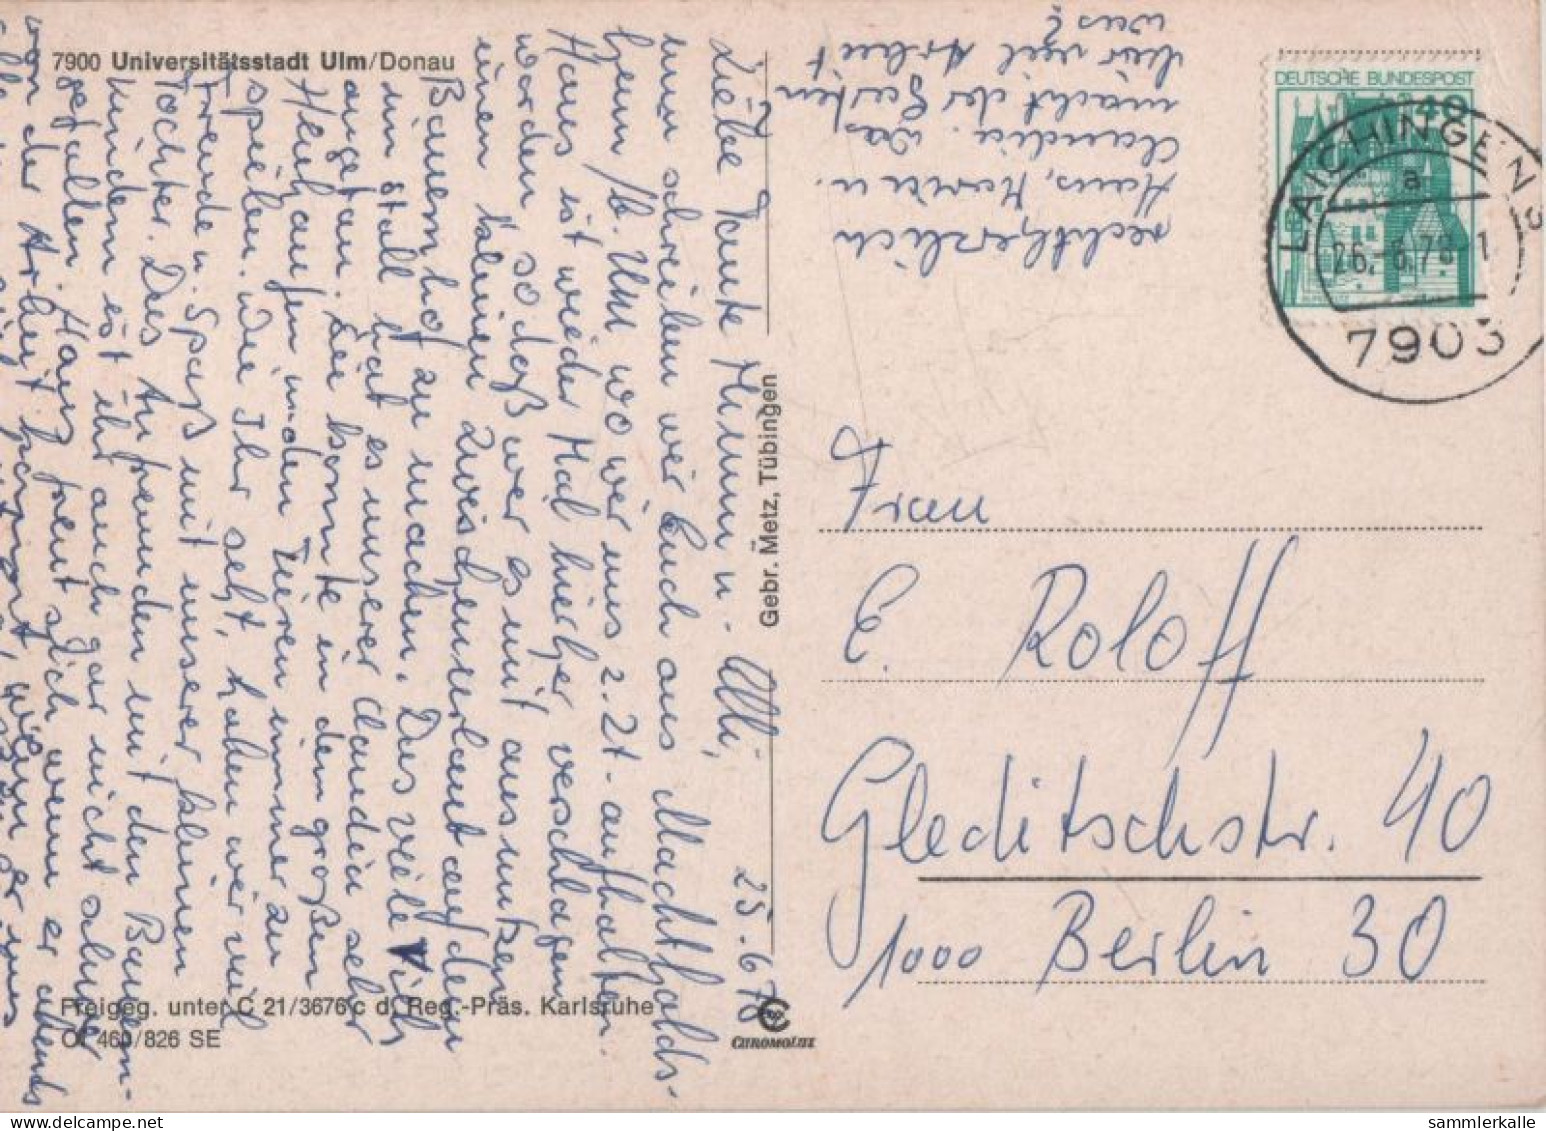 7900 Universitätsstadt Ulm/Donau
25.6.78
Liebe Tante Mimm u. Olli,
nun schreiben wir Euch aus Machtholds-
heim /b. Ulm wo wir uns z. Zt. aufhalten.
Hans ist wieder Mal hierher verschlagen
worden, so daß wir es mit ausnutzen
einen kleinen Zwischenurlaub auf dem
Bauernhof zu machen. Das viele Vieh
im Stall hat es unserer Claudia sehr
angetan. Sie konnte in dem großen
Heuhaufen mit den Tieren immer zu
spielen. Wie Ihr seht, haben wir viel
Freude u. Spaß mit unserer kleinen
Tochter. Das Anfreunden mit den Bauern-
kindern ist ihr auch gar nicht
gefallen. Hans freut sich wenn er abends
von der Arbeit kommt,
rechtherzlich
Hans, u.
Claudia. Was
macht der Garten
viel Arbeit
was?
Gebr. Metz, Tübingen
DEUTSCHE BUNDESPOST
40
LAICHINGEN
a
26.-6.78
7903
Frau
E. Roloff
Gleditschstr. 40
1000 Berlin 30
Freigeg. unter C 21/3676 c d. Reg.-Präs. Karlsruhe
460/826 SE
CHROMOLUX
sammlerkalle
www.delcampe.net